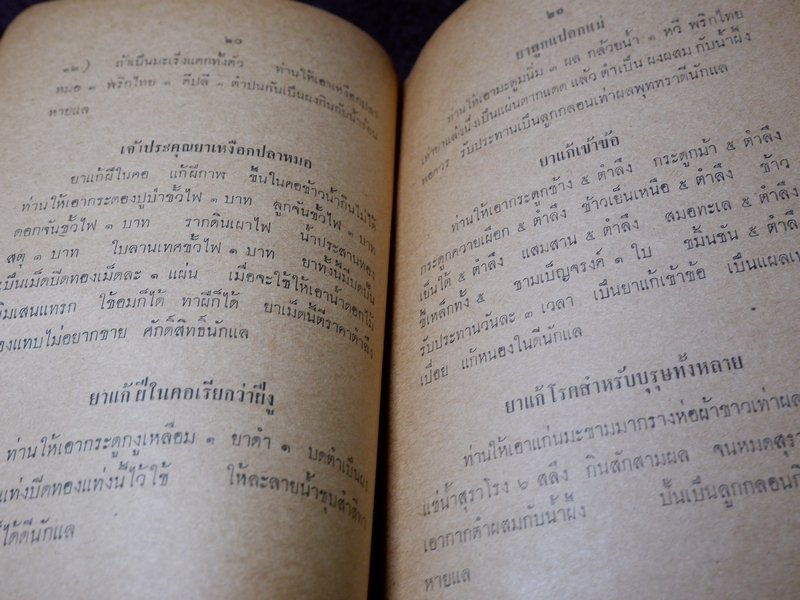 ๒๐
๑๒) ถ้าเป็นมะเร็งแตกทั้งตัว ท่านให้เอาเหงือกปลา
หมอ ๑ พริกไทย ๑ ดีปลี ๑ ตำปนกันเป็นผงกินกับน้ำร้อน
หายแล
เจ้าประคุณยาเหงือกปลาหมอ
ยาแก้ฝีในคอ แก้ฝีกาฬ ขึ้นในคอข้าวน้ำกินไม่ได้
ท่านให้เอากระดองปูป่าขั้วไฟ ๑ บาท ลูกจันขั้วไฟ ๑ บาท
ดอกจันขั้วไฟ ๑ บาท รากดินเผาไฟ น้ำประสานทอง
สตุ ๑ บาท ใบลานเทศขั้วไฟ ๑ บาท ยาทั้งนี้บดปั้น
เป็นเม็ดปิดทองเม็ดละ ๑ แผ่น เมื่อจะใช้ให้เอาน้ำดอกไม้
พิมเสนแทรก ใช้อมก็ได้ ทาฝีก็ได้ ยาเม็ดนี้ตีราคาตำลึง
ทองแทบไม่อยากขาย ศักดิ์สิทธิ์นักแล
ยาแก้ฝีในคอเรียกว่าฝีงู
ท่านให้เอากระดูกงูเหลือม ๑ ยาดำ ๑ บดตำเป็นผง
แท่งปิดทองแท่งนี้ไว้ใช้ ให้ละลายน้ำชุบสำลีทา
ก็ได้ดีนักแล
๒๑
ยาลูกแปลกแม่
ท่านให้เอามะตูมนิ่ม ๑ ผล กล้วยน้ำ ๑ หวี พริกไทย
เท่ายาแล้งนึ่งเป็นแผ่นตากแดด แล้ว ตำเป็น ผงผสม กับน้ำผึ้ง
พอควร รับประทานเป็นลูกกลอนเท่าผลพุทราดีนักแล
ยาแก้เข้าข้อ
ท่านให้เอากระดูกช้าง ๕ ตำลึง กระดูกม้า ๕ ตำลึง
กระดูกควายเผือก ๕ ตำลึง ข้าวเย็นเหนือ ๕ ตำลึง ข้าว
เย็นใต้ ๕ ตำลึง แสมสาน ๕ ตำลึง สมอทะเล ๕ ตำลึง
ขี้เหล็กทั้ง ๕ ชามเบ็ญจรงค์ ๑ ใบ ขมิ้นชัน ๕ ตำลึง
รับประทานวันละ ๓ เวลา เป็นยาแก้เข้าข้อ เป็นแผลเน่า
เปื่อย แก้หนองในดีนักแล
ยาแก้โรคสำหรับบุรุษทั้งหลาย
ท่านให้เอาแก่นมะขามมากรางห่อผ้าขาวเท่าผล
แช่น้ำสุราโรง ๖ สลึง กินสักสามผล จนหมดสุรา
เอากากตำผสมกับน้ำผึ้ง ปั้นเป็นลูกกลอนกิ
หายแล